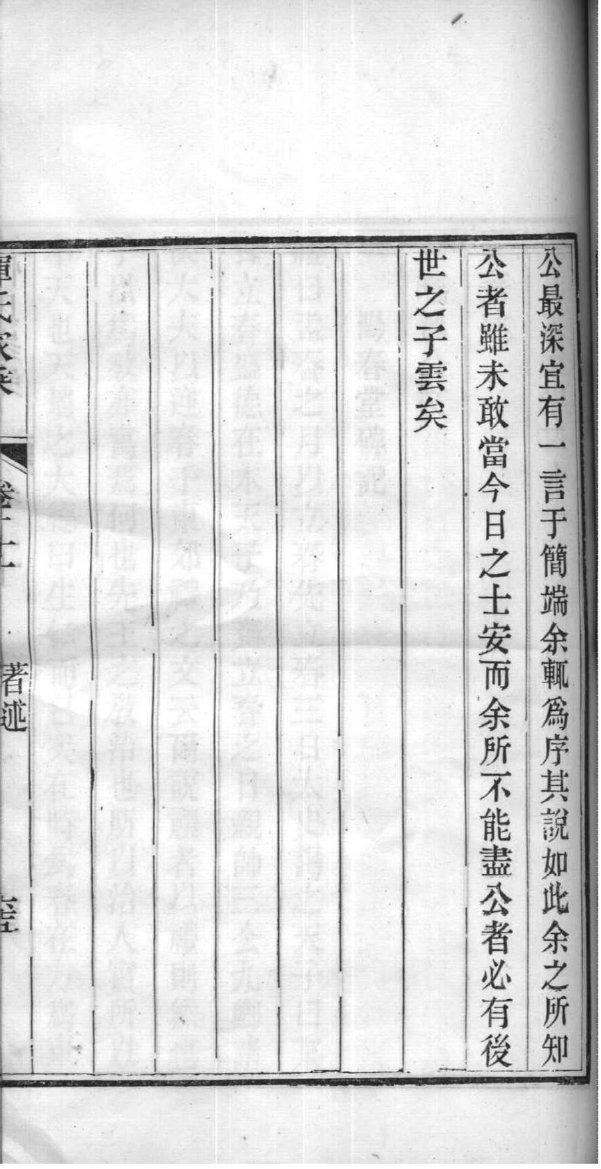 公最深宜有一言于簡端余輒爲序其說如此余之所知
公者雖未敢當今日之士安而余所不能盡公者必有後
世之子雲矣
惲氏家乘
卷十一
著述